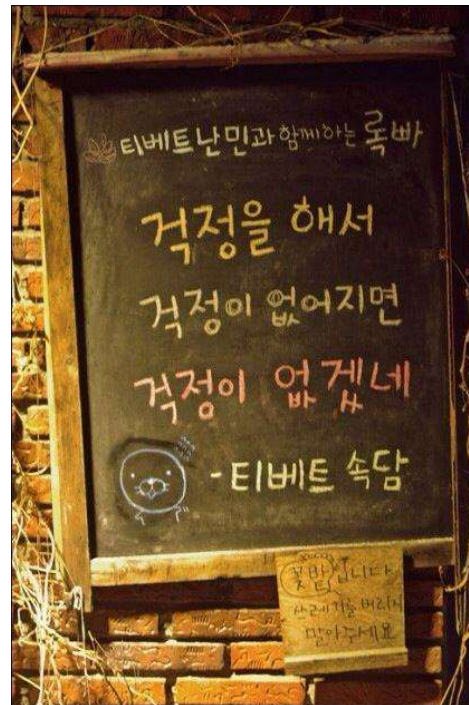 티베트난민과 함께하는 록빠
걱정을 해서
걱정이 없어지면
걱정이 없겠네
- 티베트 속담
꽃밭입니다
쓰레기를 버리지
말아주세요